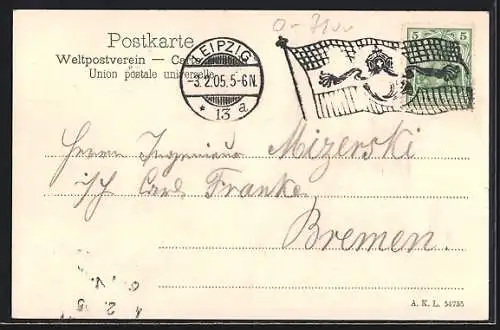 0-7100
Postkarte
Weltpostverein — Carte
Union postale universelle
LEIPZIG
-3.2.05.5-6N.
* 13 a
5 5
Herrn Ingenieur Mizerski
Carl Franke
Bremen.
A. K. L. 54735